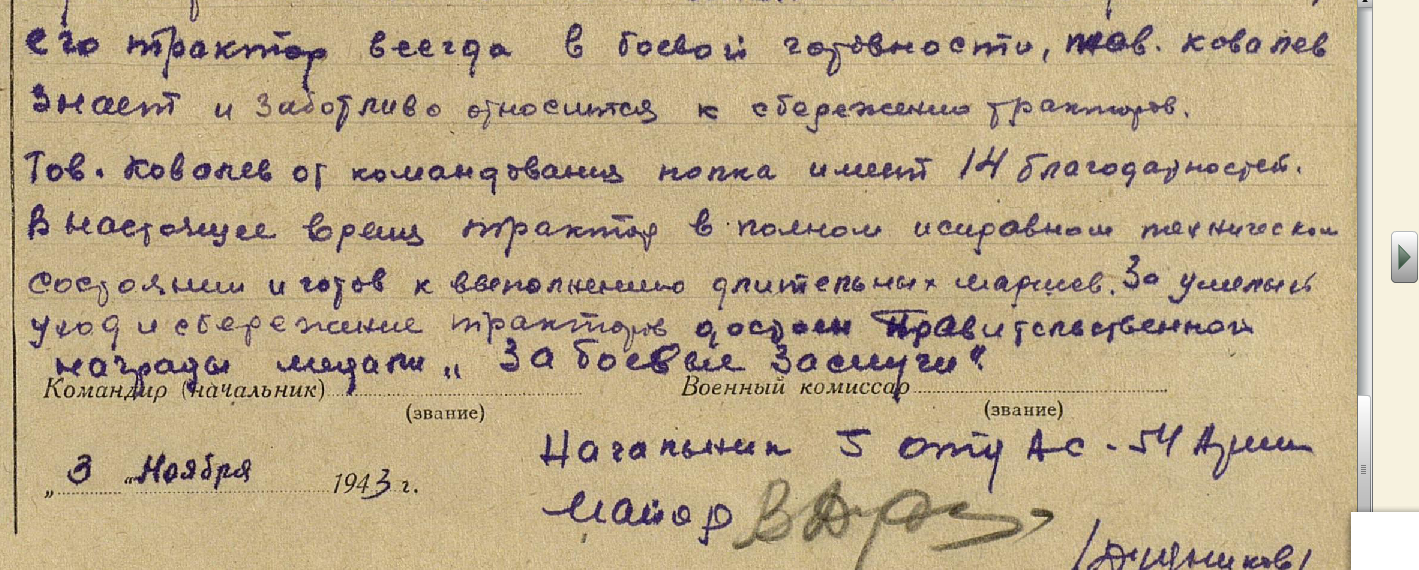 его трактор всегда в боевой готовности, тов. Ковалев
знает и заботливо относится к сбережению тракторов.
Тов. Ковалев от командования полка имеет 14 благодарностей.
В настоящее время трактор в полном исправном техническом
состоянии и готов к выполнению длительных маршев. За умелый
уход и сбережение тракторов достоен Правительственной
награды медали „За боевые заслуги".
Командир (начальник) Военный комиссар
(звание) (звание)
Начальник 5 АС-54 Армии
„3" Ноября 1943 г.
Майор